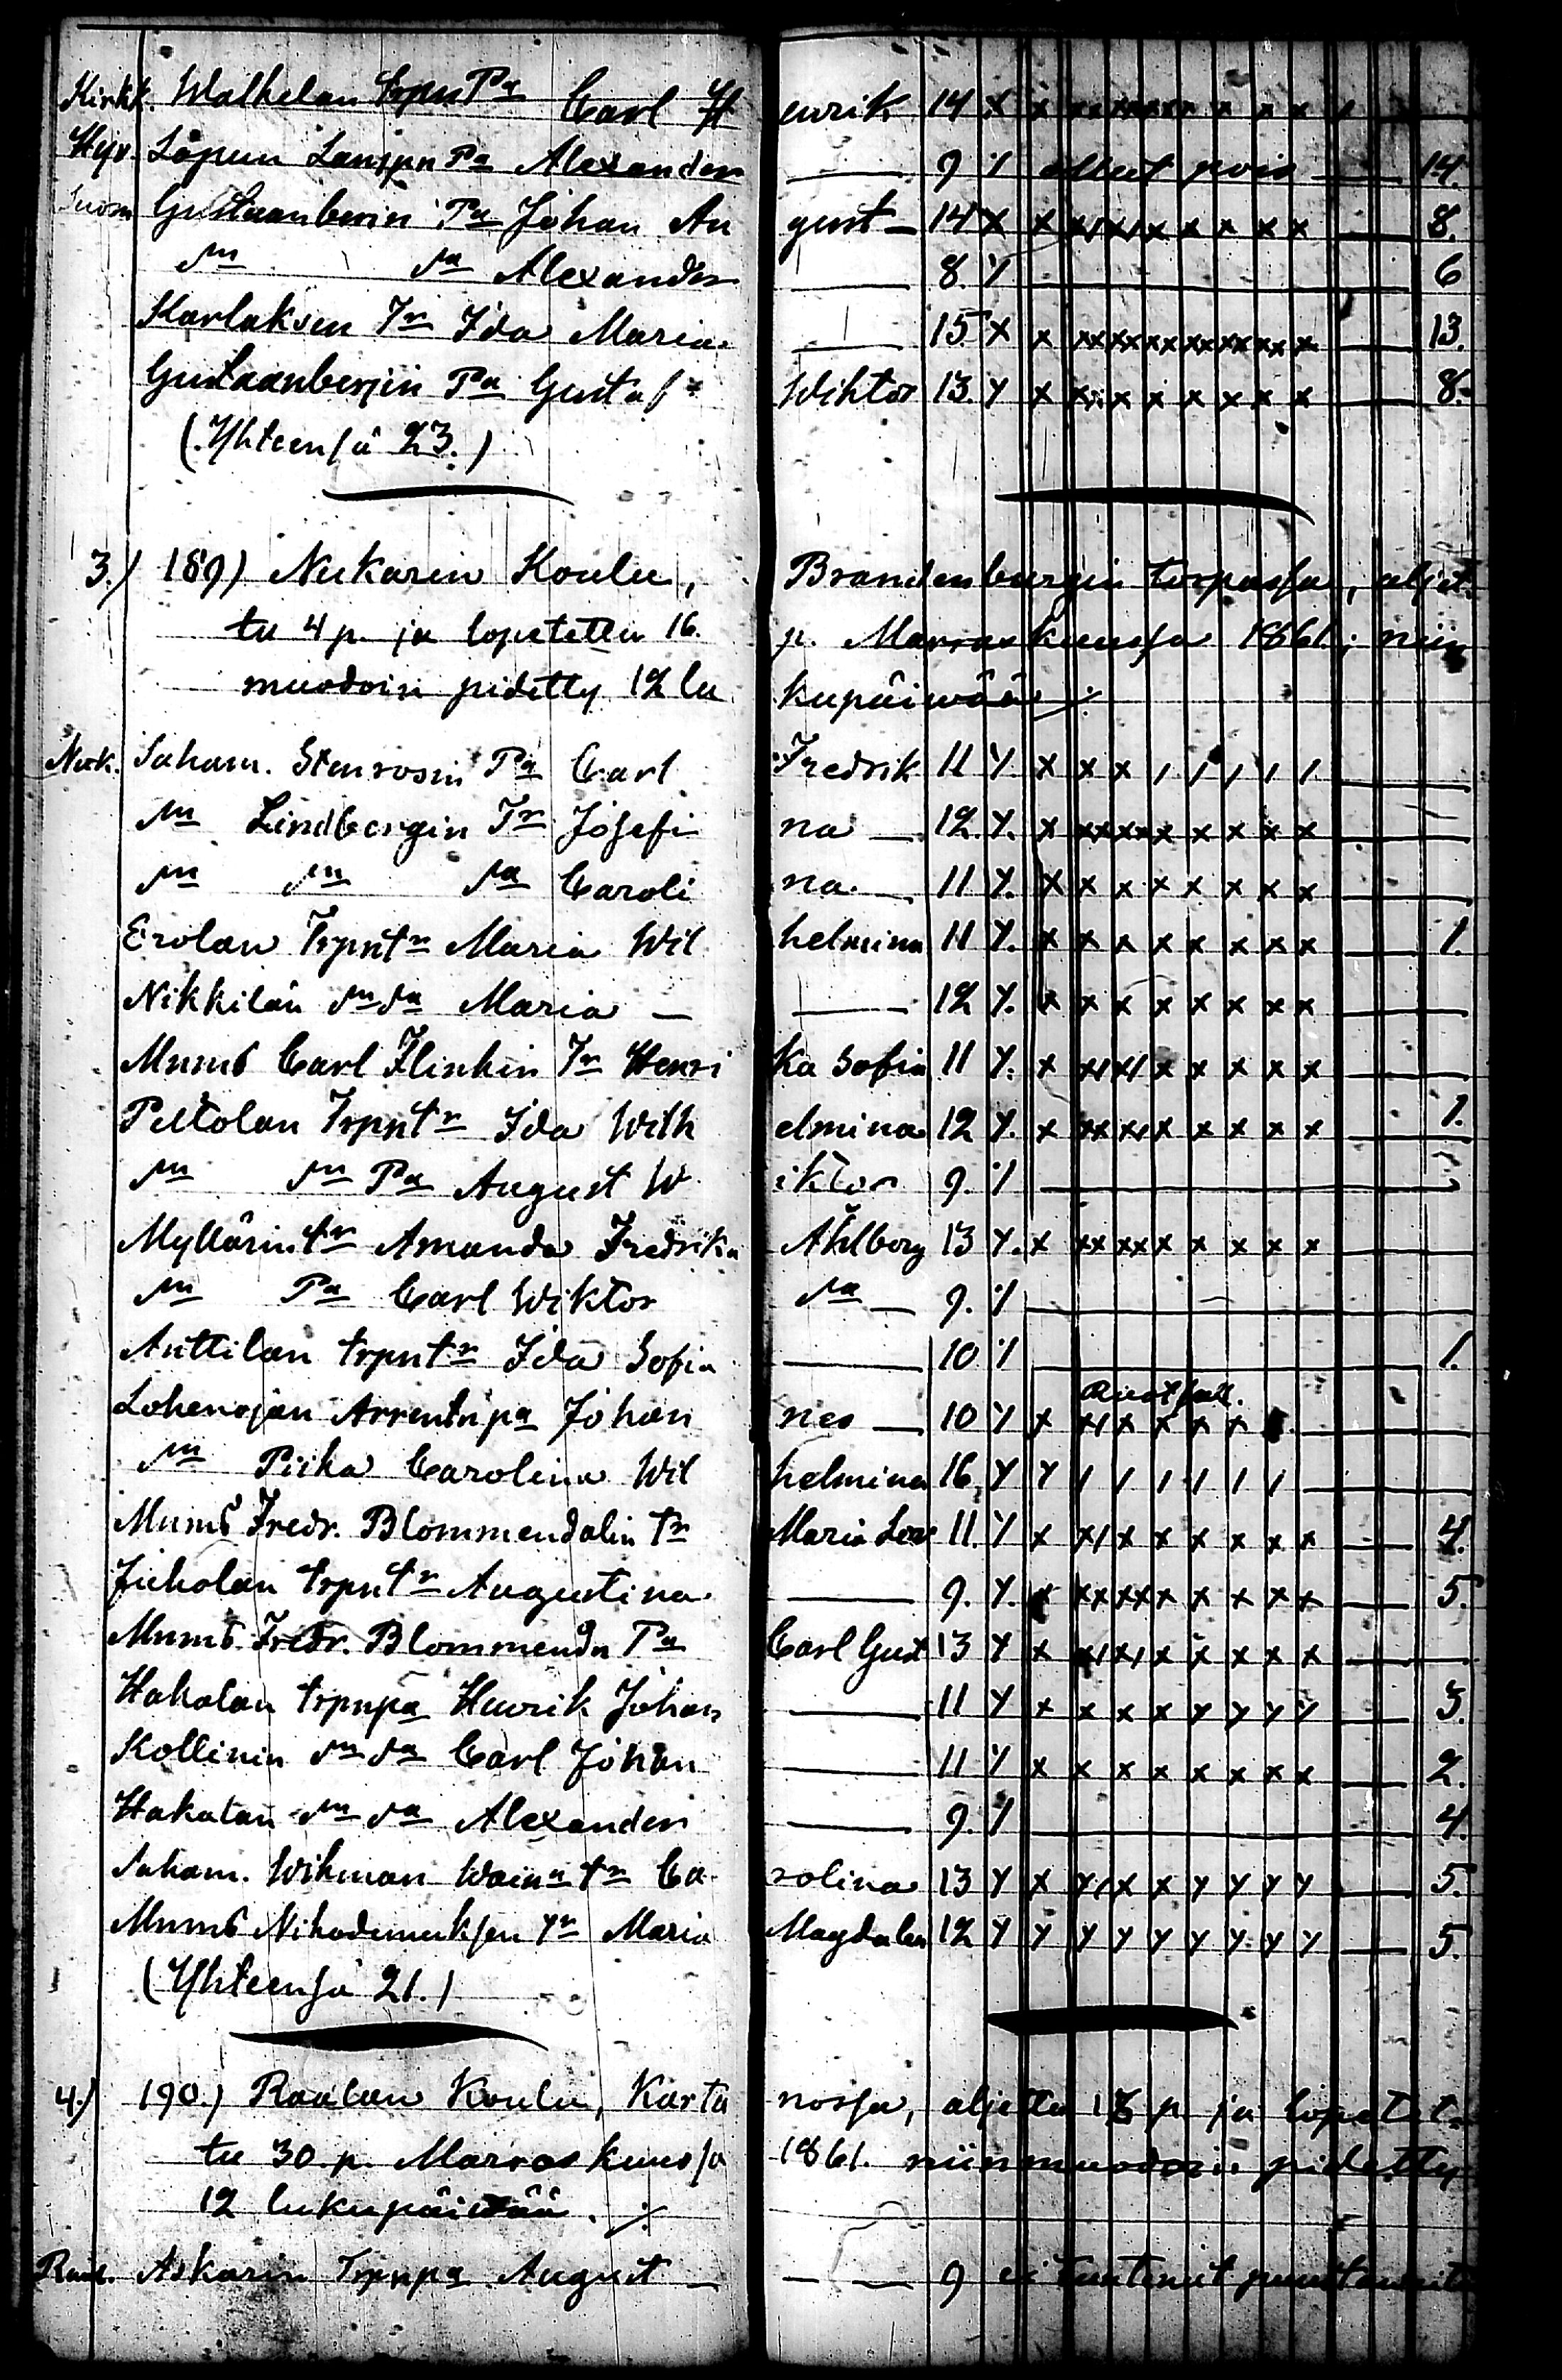 Kirkk. Walkelan trpn Pa Carl Henrik 14 x x x x x x x x x x x x
Hyv. Lopun Lampn Pa Alexander — 9 ollut pois — 14.
Suom Gustaanberin Pa Johan August — 14 x x x x x x x x x x — 8.
dn da Alexander — 8. — 6
Karlaksen Tr Ida Maria — 15 x x xx xx x x x x x x x — 13.
Gustaanberjin Pa Gustaf Wiktor 13. y x x x x x x x x — 8.
(Yhteensä 23.)
3.) 189) Nukarin Koulu, Brandenburgin torpassa, aljet-
tu 4 p. ja lopetettu 16. p. Marraskuussa 1861.; niin
muodoin pidetty 12 lukupäiwää ./.
Nuk. Saham. Stenrosin Pa Carl Fredrik 11 y. x x x / / / / / —
dn Lindbergin Tr Josefina — 12. y. x xx xx x x x x x —
dn dn da Carolina — 11 y. x x x x x x x x —
Erolan Trpn tr Maria Wilhelmina 11 y. x x x x x x x x — 1.
Nikkilän dn da Maria — 12 y. x x x x x x x x —
Mnms Carl Flinkin Tr Henrika Sofia 11 y. x x/x/ x x x x x —
Peltolan Trpn tr Ida Wilhelmina 12 y. x xx x/ x x x x x — 1.
dn dn Pa August Wiktor 9. —
Myllärin tr Amanda Fredrika Ahlberg 13 y. x xx xx x x x x x —
dn Pa Carl Wiktor da — 9. —
Anttilan trpn tr Ida Sofia — 10 — 1.
Lohenojan Arrentn pa Johannes — 10 y x x/ x x x x —
dn Piika Carolina Wilhelmina 16, y y / / / / / / —
Mnms Fredr. Blommendalin tr Maria Lov 11. y x x/ x x x x x x — 4.
Jicholan trpn tr Augustina — 9. y. x xx xx x x x x x — 5.
Mnms. Fredr. Blommendn Pa Carl Gust 13 y x x/x/ x x x x x —
Hakalan trpn pa Henrik Johan — 11 y x x x x y y y y — 3.
Kollinin dn da Carl Johan — 11 y x x x x x x x x — 2.
Hakalan dn da Alexander — 9. — 4.
Saham. Wikman Waina tr Carolina 13 y x y/x x y y y y — 5.
Mnms Nikodemuksen Tr Maria Magdalen 12 y y y y y y y y y — 5.
(Yhteensä 21.)
4.) 190.) Raalan Koulu, Kartanossa, aljettu p ja lopetet-
tu 30. p. Marraskuussa 1861. niinmuodoin pidetty
12 lukupäiwää. ./.
Askarin Trpn pa August — — 9 ei tuntenut